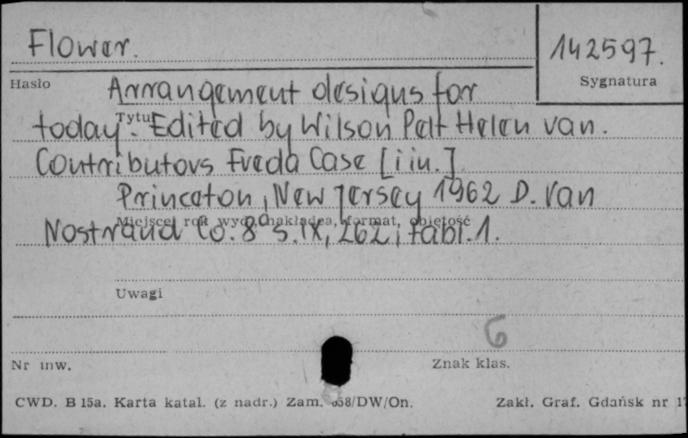 Flower.
142597.
Hasło
Sygnatura
Arrangement designs for
Tytuł
today. Edited by Wilson Pelt Helen van.
Contributors Freda Case [i in.]
Princeton, New Jersey 1962 D. Van
Miejsce, rok wyd., nakładca, format, objętość
Nostrand Co. 8° s. IX, 262, tabl. 1.
Uwagi
6
Nr inw.
Znak klas.
CWD. B 15a. Karta katal. (z nadr.) Zam. 658/DW/On.
Zakł. Graf. Gdańsk nr